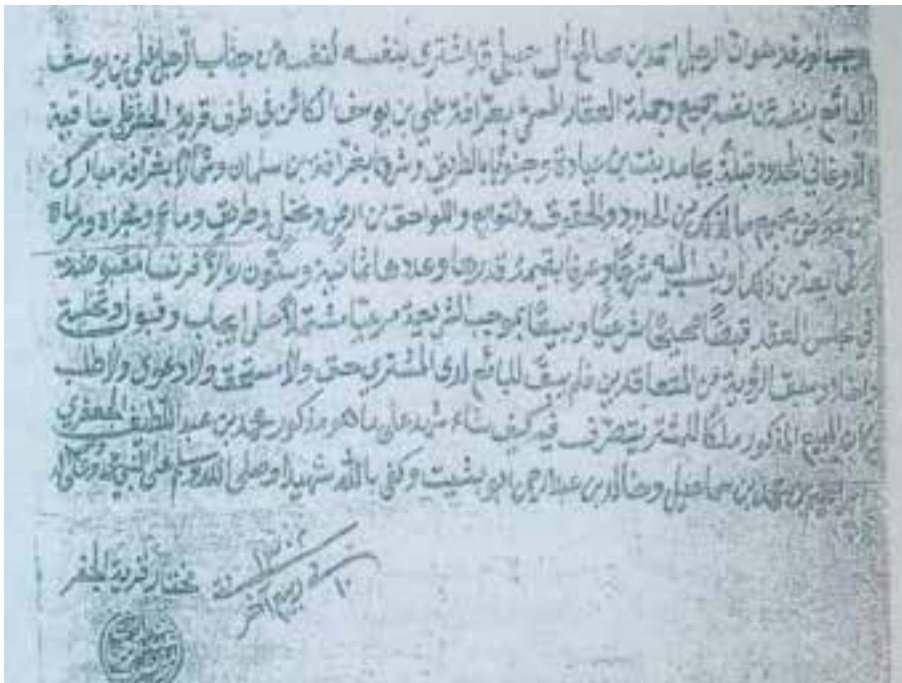 الرجل احمد بن صالح أل جبيلي قد اشترى بنفسه لنفسه من جناب الرجل علي بن يوسف
البائع بنفسه عن نفسه جميع وجملة العقار المسمى بغرافة علي بن يوسف الكائن في طرف قرية الجفر
المحدود قبلة بنت بن عيادة وجنوبا بالطريق وشرقا بغرافة بن سلمان وشمالا بغرافة مبارك
بن من الحدود والحقوق والتوابع واللواحق من ارض ونخل وطريق وماء
كلما يعد من ذلك او ينسب اليه شرعا وعرفا بقيمة قدرها وعددها ثمانية وستون ريالا فرنسا مقبوضة
في مجلس العقد قبضا صحيحا شرعيا وبيعا بموجب الشريعة مرعيا مشتملا على ايجاب وقبول وتخلية
وسبق الرؤية من المتعاقدين فلم يبق للبائع لدى المشتري حق ولا مستحق ولا دعوى ولا طلب
كان المبيع المذكور ملكا للمشتري يتصرف فيه كيف شاء شهد على ما هو مذكور محمد بن عبد اللطيف الجعفري
بن اسماعيل بن عبد الرحمن ابو بشيت وكفى بالله شهيدا وصلى الله وسلم على النبي محمد وعلى اله
١٠ ربيع آخر سنة ١٣٠٢
مختار قرية الجفر